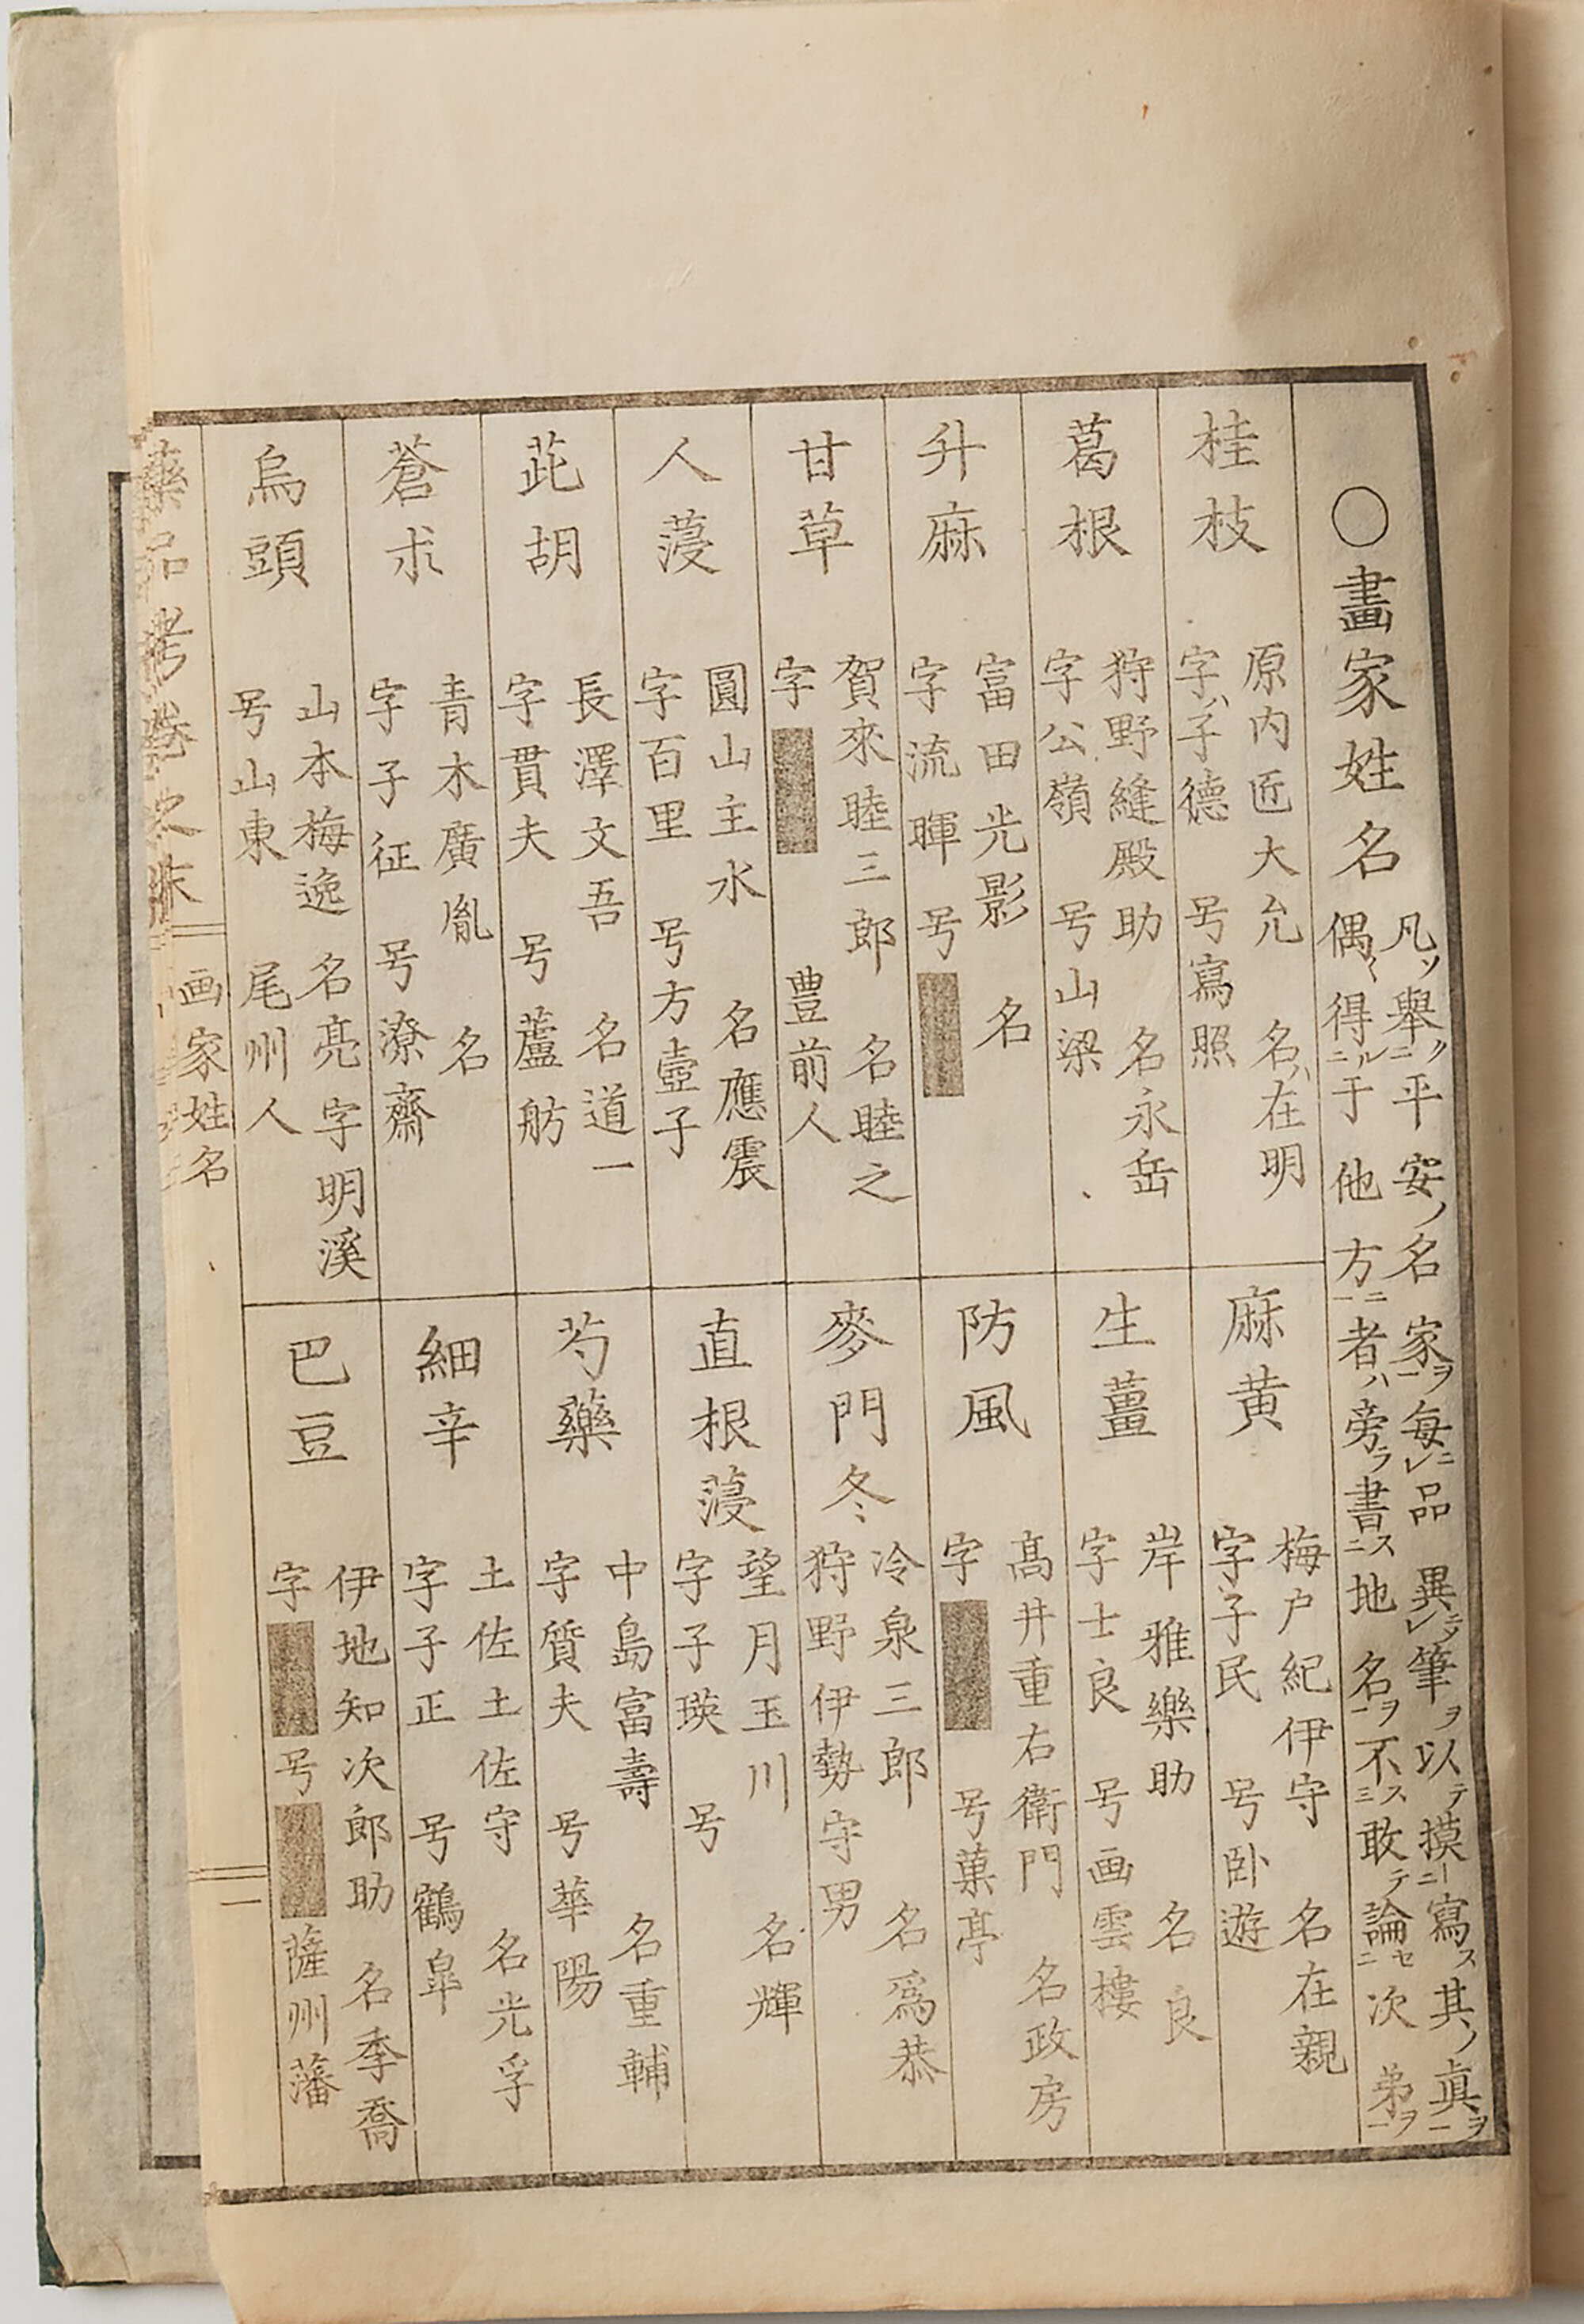 ○畫家姓名
凡ソ舉ニク平安ノ名家ヲ一每ニレ品異ニレテ筆ヲ以テ摸ニ一寫ス其ノ眞ヲ一
偶〱得ニル于他方ニ一者ハ旁ラ書ニス地名ヲ一不三ス敢テ論ニセ次弟ヲ一
桂枝
原内匠大允 名ハ在明
字ハ子德 号寫照
麻黄
梅戸紀伊守 名在親
字子民 号卧遊
葛根
狩野縫殿助 名永岳
字公嶺 号山梁
生薑
岸雅樂助 名良
字士良 号画雲樓
升麻
富田光影 名
字流暉 号
防風
髙井重右衛門 名政房
字 号菓亭
甘草
賀來睦三郎 名睦之
字 豊前人
麥門冬
冷泉三郎 名爲恭
狩野伊勢守男
人薓
圓山主水 名應震
字百里 号方壺子
直根薓
望月玉川 名輝
字子瑛 号
茈胡
長澤文吾 名道一
字貫夫 号蘆舫
芍藥
中島富壽 名重輔
字質夫 号華陽
蒼朮
青木廣胤 名
字子征 号潦齋
細辛
土佐土佐守 名光孚
字子正 号鶴皐
烏頭
山本梅逸 名亮字明溪
号山東 尾州人
巴豆
伊地知次郎助 名季喬
字 号 薩州藩
藥品考卷之末 画家姓名 一